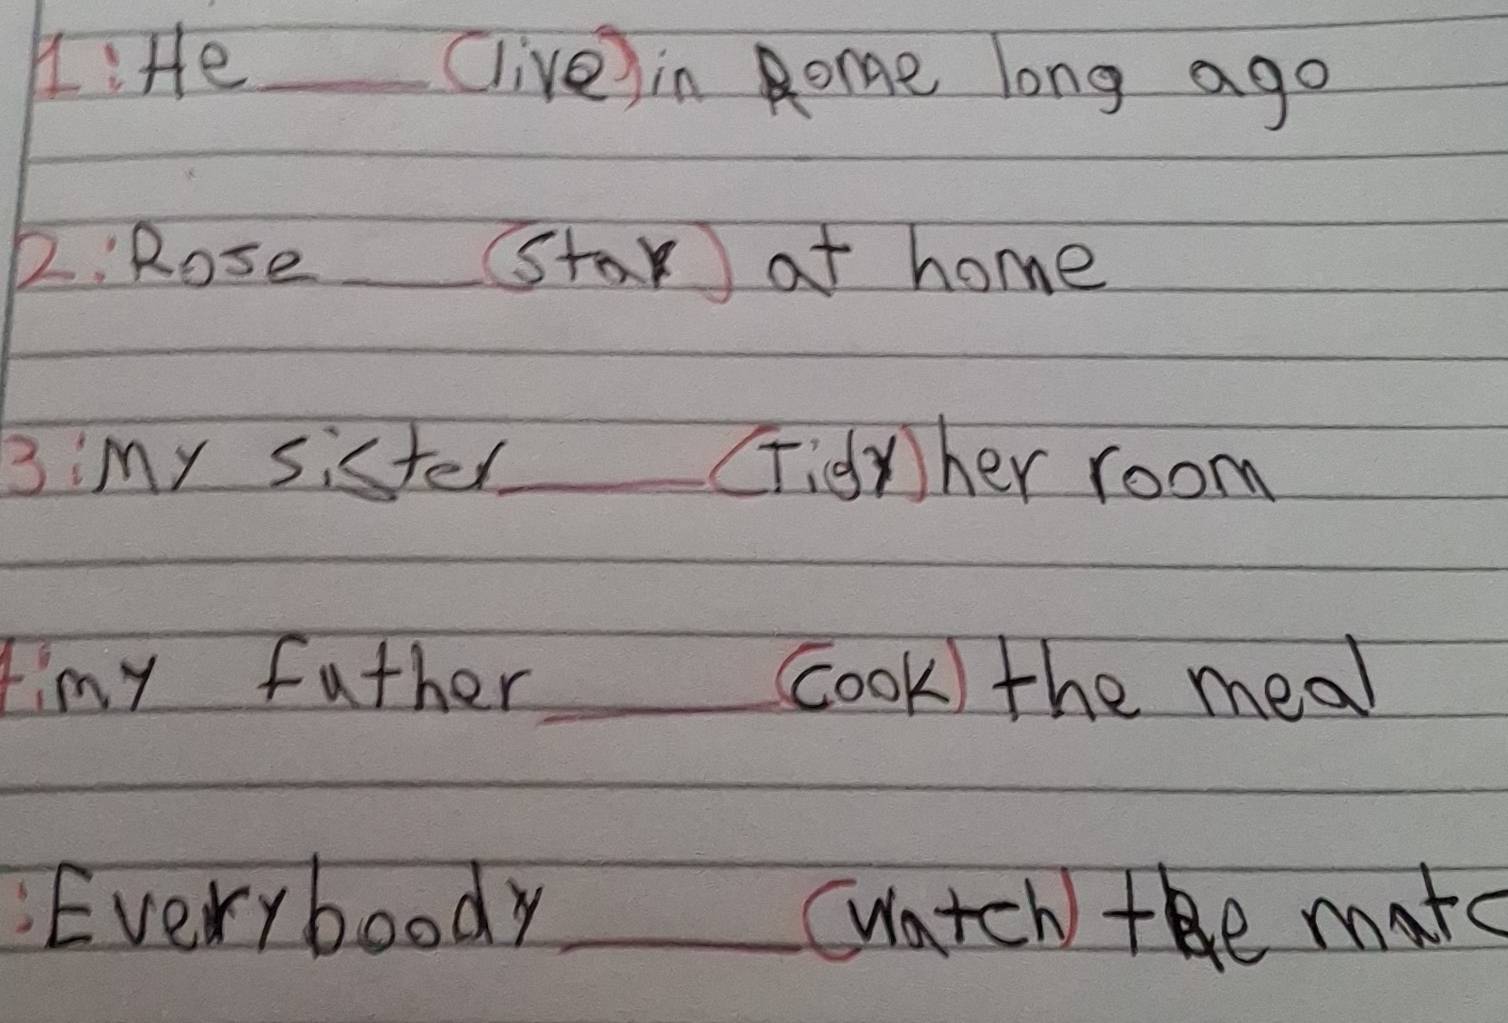 1: He ____ (live) in Rome long ago
2: Rose ____ (stay) at home
3: My sister ____ (Tidy) her room
: my father ____ (cook) the meal
: Everyboody ____ (watch) the matc